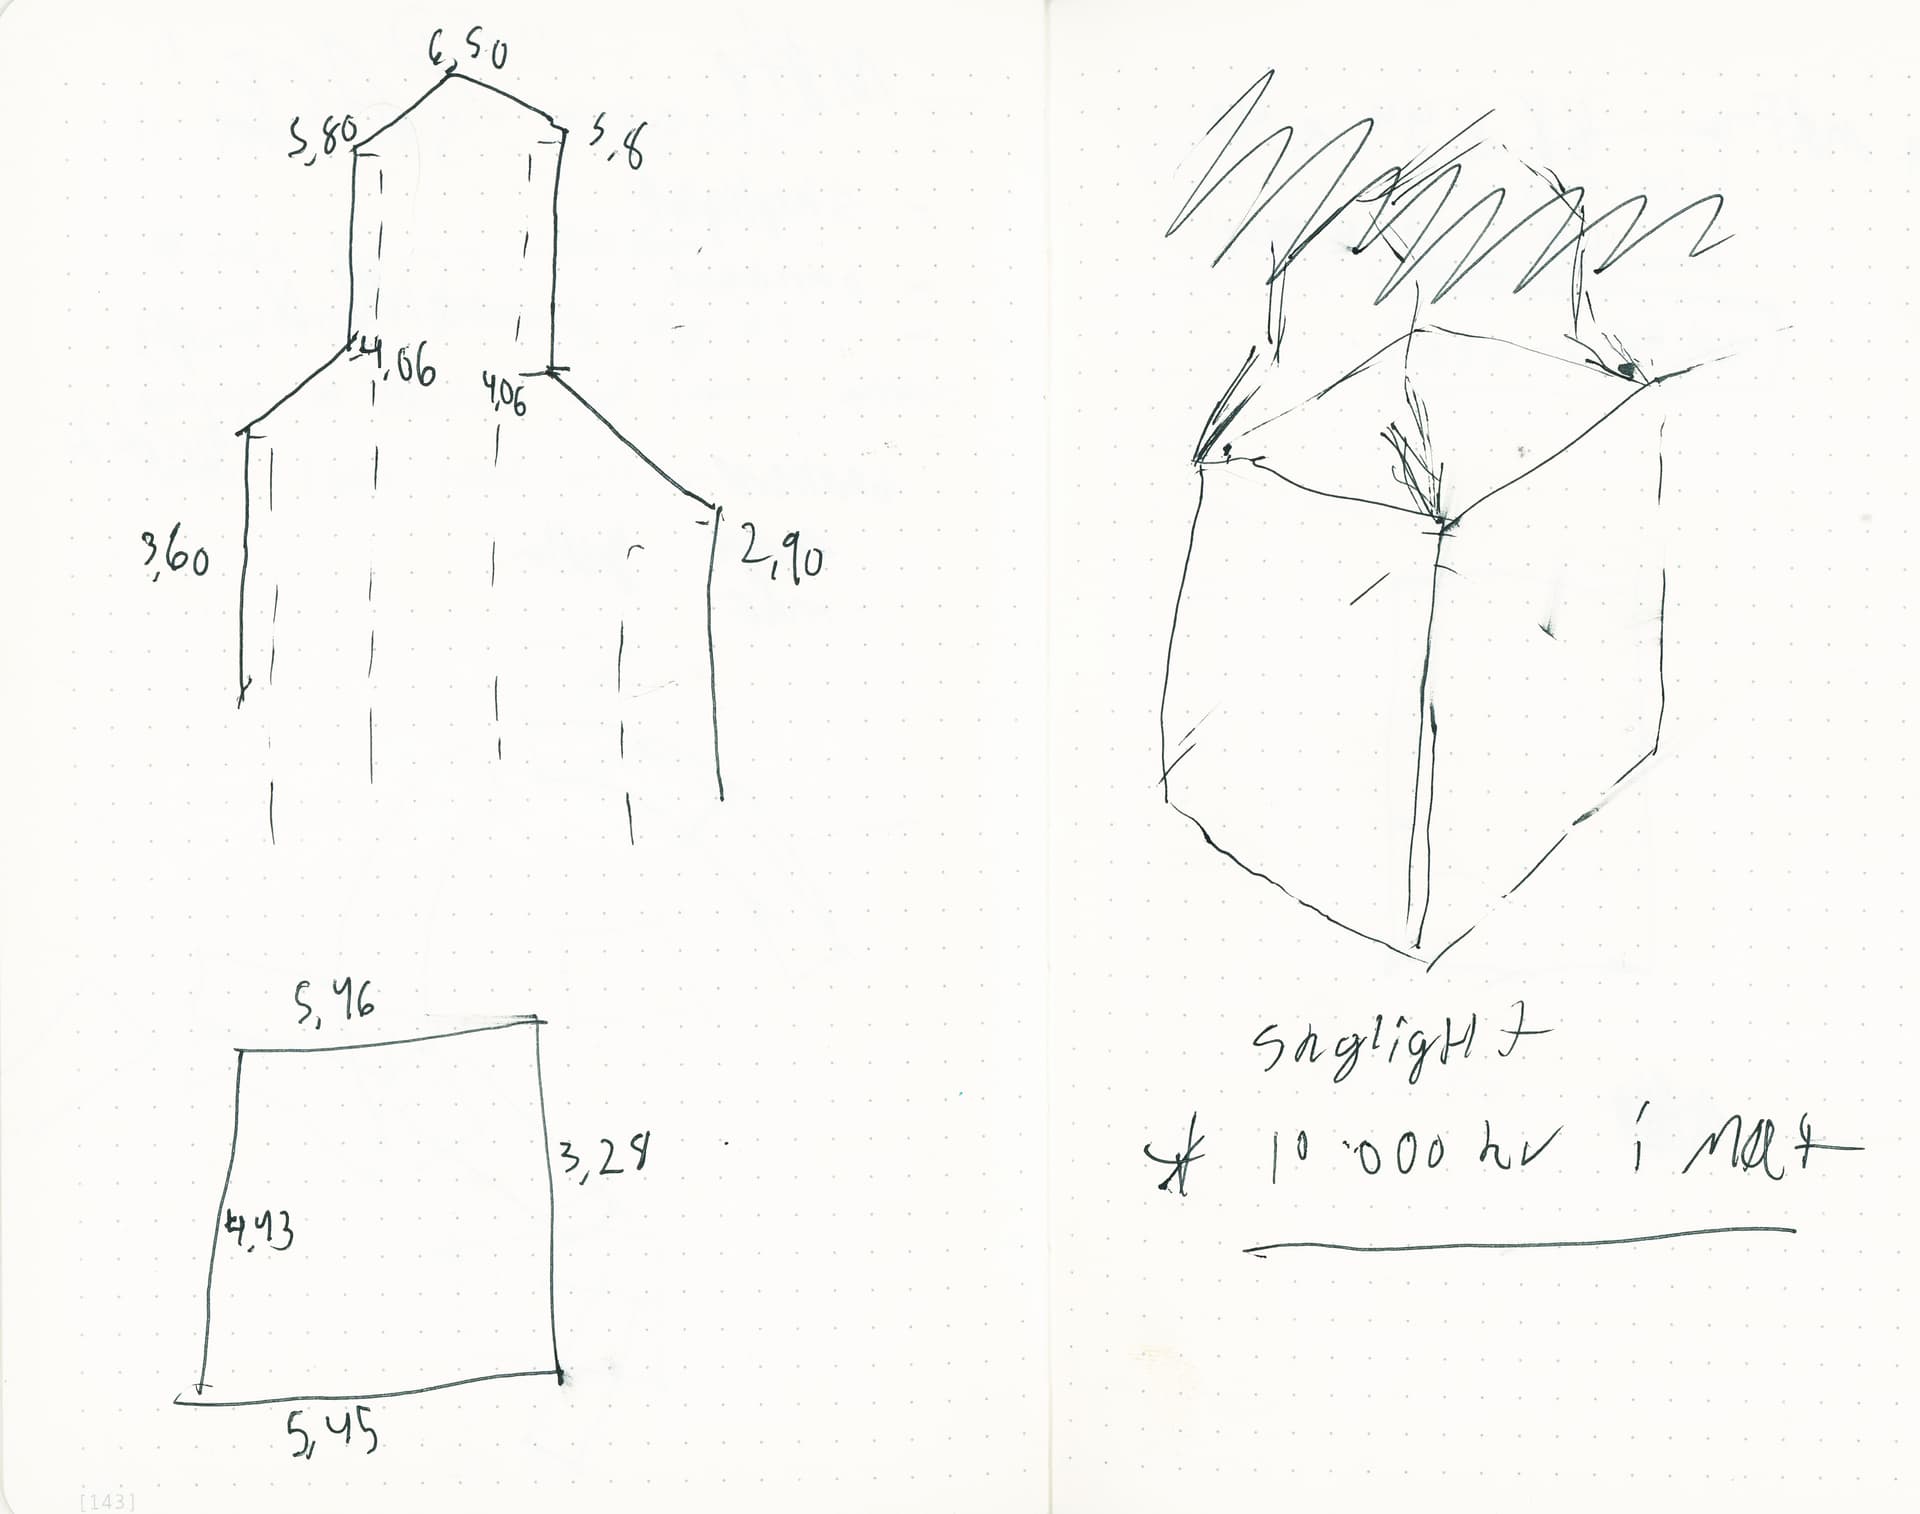 6,50
5,80
5,8
4,06
4,06
3,60
2,90
5,46
3,28
4,43
5,45
[143]
* 10.000 kr i mat